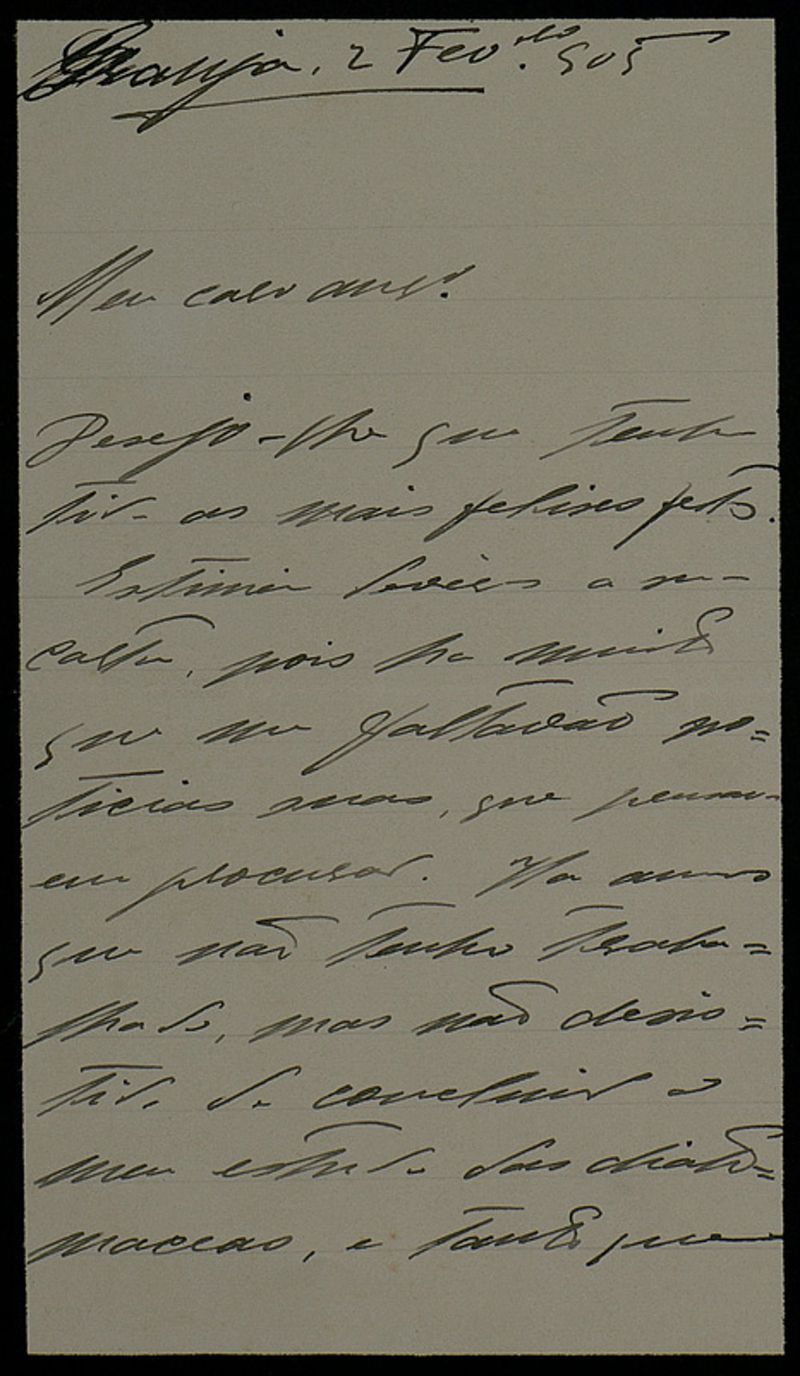 Granja, 2 Fev.ro 905
Meu caro amgº.
Desejo-lhe que tenha
tido as mais felises festas.
Estimei deveras a
carta, pois ha muito
que me faltavão no=
ticias suas, que pensei
em procurar. Ha annos
que não tenho traba=
lhado, mas não desis=
tido de concluir o
meu estudo das diato=
maceas, e tanto que